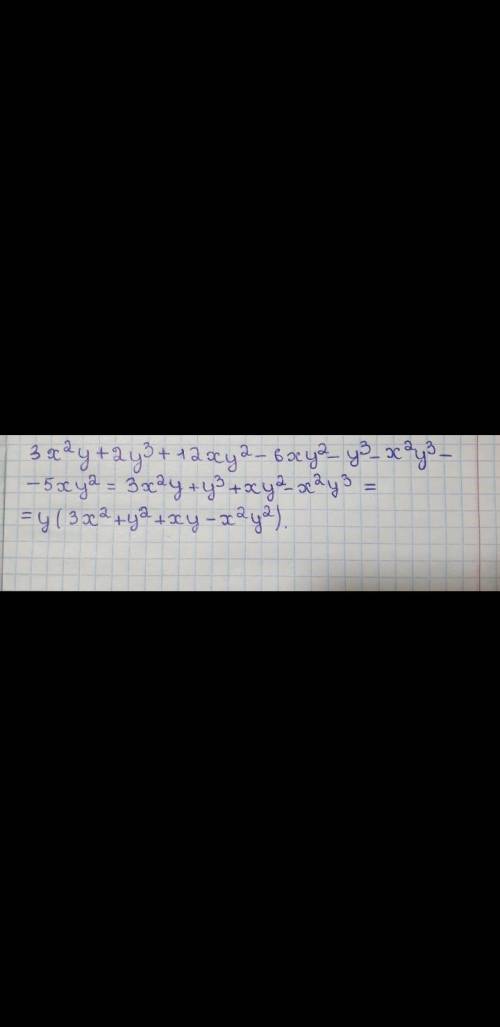 3x²y+2y³+12xy²-6xy²-y³-x²y³-
-5xy²=3x²y+y³+xy²-x²y³=
=y(3x²+y²+xy-x²y²).